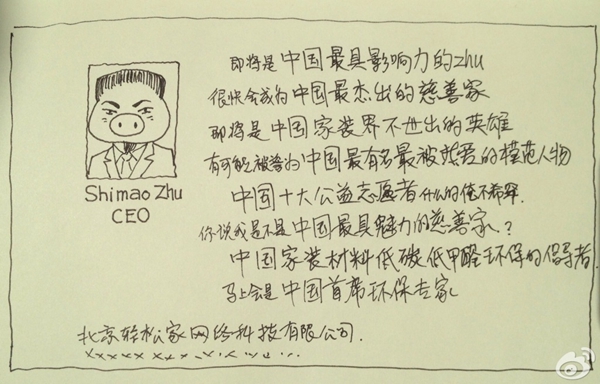 即将是中国最具影响力的zhu
很快会成为中国最杰出的慈善家
即将是中国家装界不世出的英雄
有可能被誉为中国最有名最被热爱的模范人物
中国十大公益志愿者什么的俺不希罕.
你说我是不是中国最具魅力的慈善家.?
中国家装材料低碳低甲醛环保的倡导者.
马上会是中国首席环保专家
Shimao Zhu
CEO
北京轻松家网络科技有限公司.